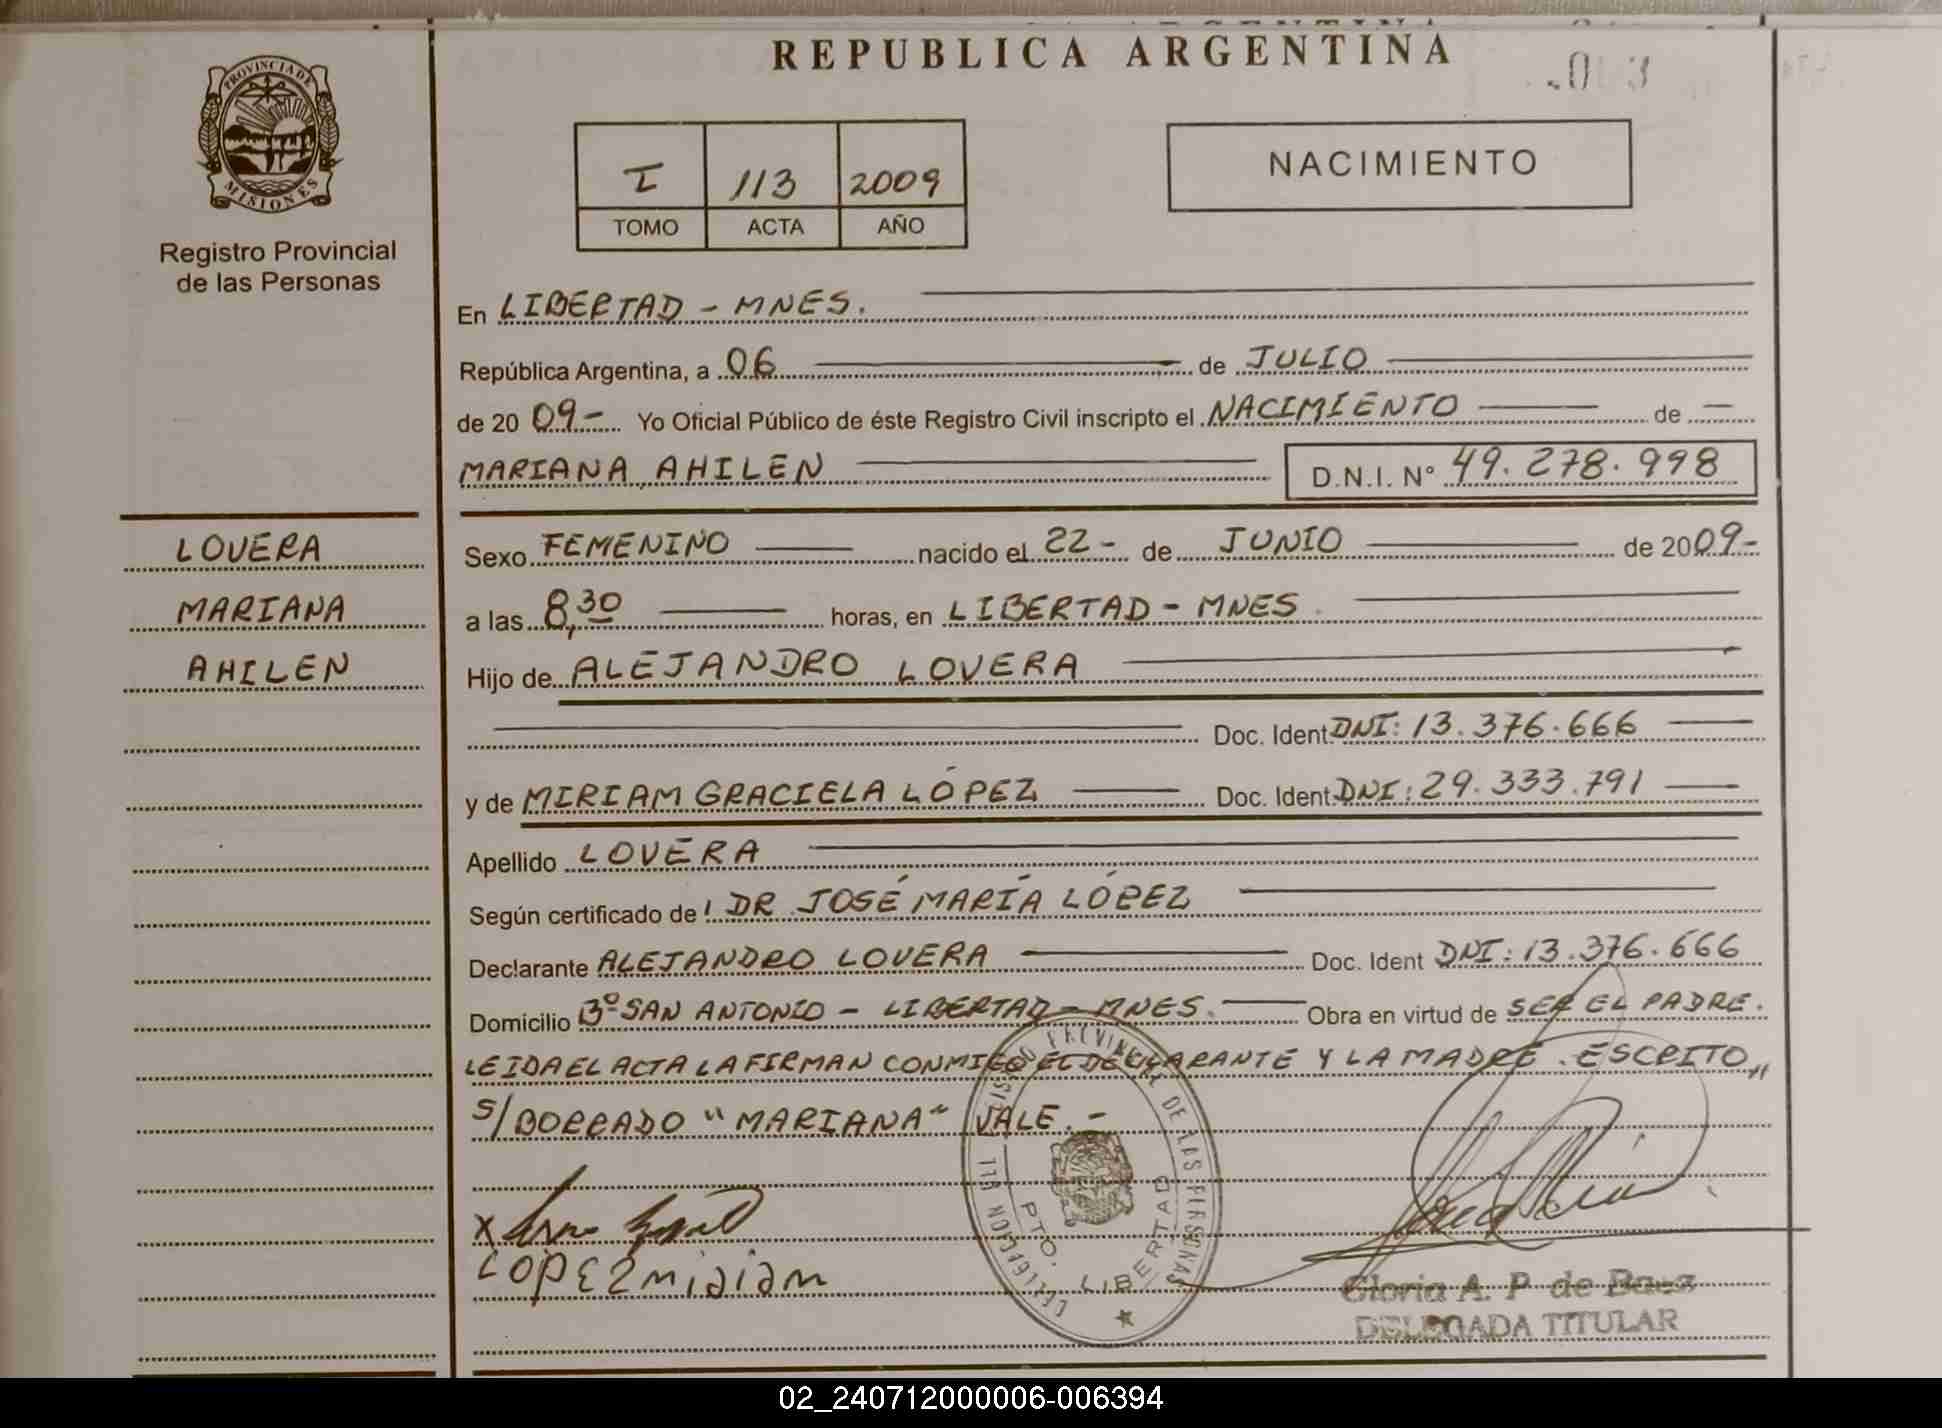 REPUBLICA ARGENTINA
PROVINCIA DE
MISIONES
Registro Provincial
de las Personas
I 113 2009
TOMO ACTA AÑO
NACIMIENTO
En LIBERTAD - MNES.
República Argentina, a 06 de JULIO
de 20 09.- Yo Oficial Público de éste Registro Civil inscripto el NACIMIENTO de —
MARIANA AHILEN D.N.I. N° 49.278.998
LOVERA
MARIANA
AHILEN
Sexo FEMENINO nacido el 22 - de JUNIO de 2009-
a las 8,30 horas, en LIBERTAD - MNES.
Hijo de ALEJANDRO LOVERA
Doc. Ident DNI: 13.376.666
y de MIRIAM GRACIELA LÓPEZ Doc. Ident DNI: 29.333.791
Apellido LOVERA
Según certificado de DR JOSÉ MARÍA LÓPEZ
Declarante ALEJANDRO LOVERA Doc. Ident DNI: 13.376.666
Domicilio B° SAN ANTONIO - LIBERTAD - MNES. Obra en virtud de SER EL PADRE.
LEIDA EL ACTA LA FIRMAN CONMIGO EL DECLARANTE Y LA MADRE. ESCRITO
S/BORRADO "MARIANA" VALE.-
LOPEZ miriam
PTO. LIBERTAD
DE LAS PERSONAS
Gloria A. P. de Baez
DELEGADA TITULAR
02_240712000006-006394